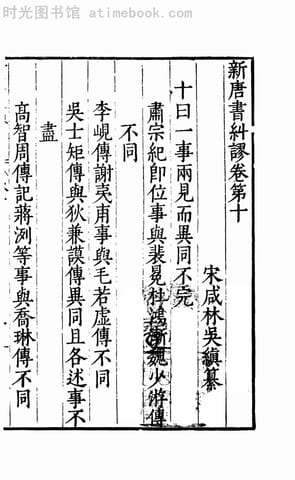 时光图书馆 - atimebook.com
新唐書糾謬卷第十
宋咸林吳縝纂
十曰一事兩見而異同不完
肅宗紀即位事與裴冕杜鴻漸魏少游傳
不同
李峴傳謝夷甫事與毛若虛傳不同
吳士矩傳與狄兼謨傳異同且各述事不
盡
高智周傳記蔣洌等事與喬琳傳不同